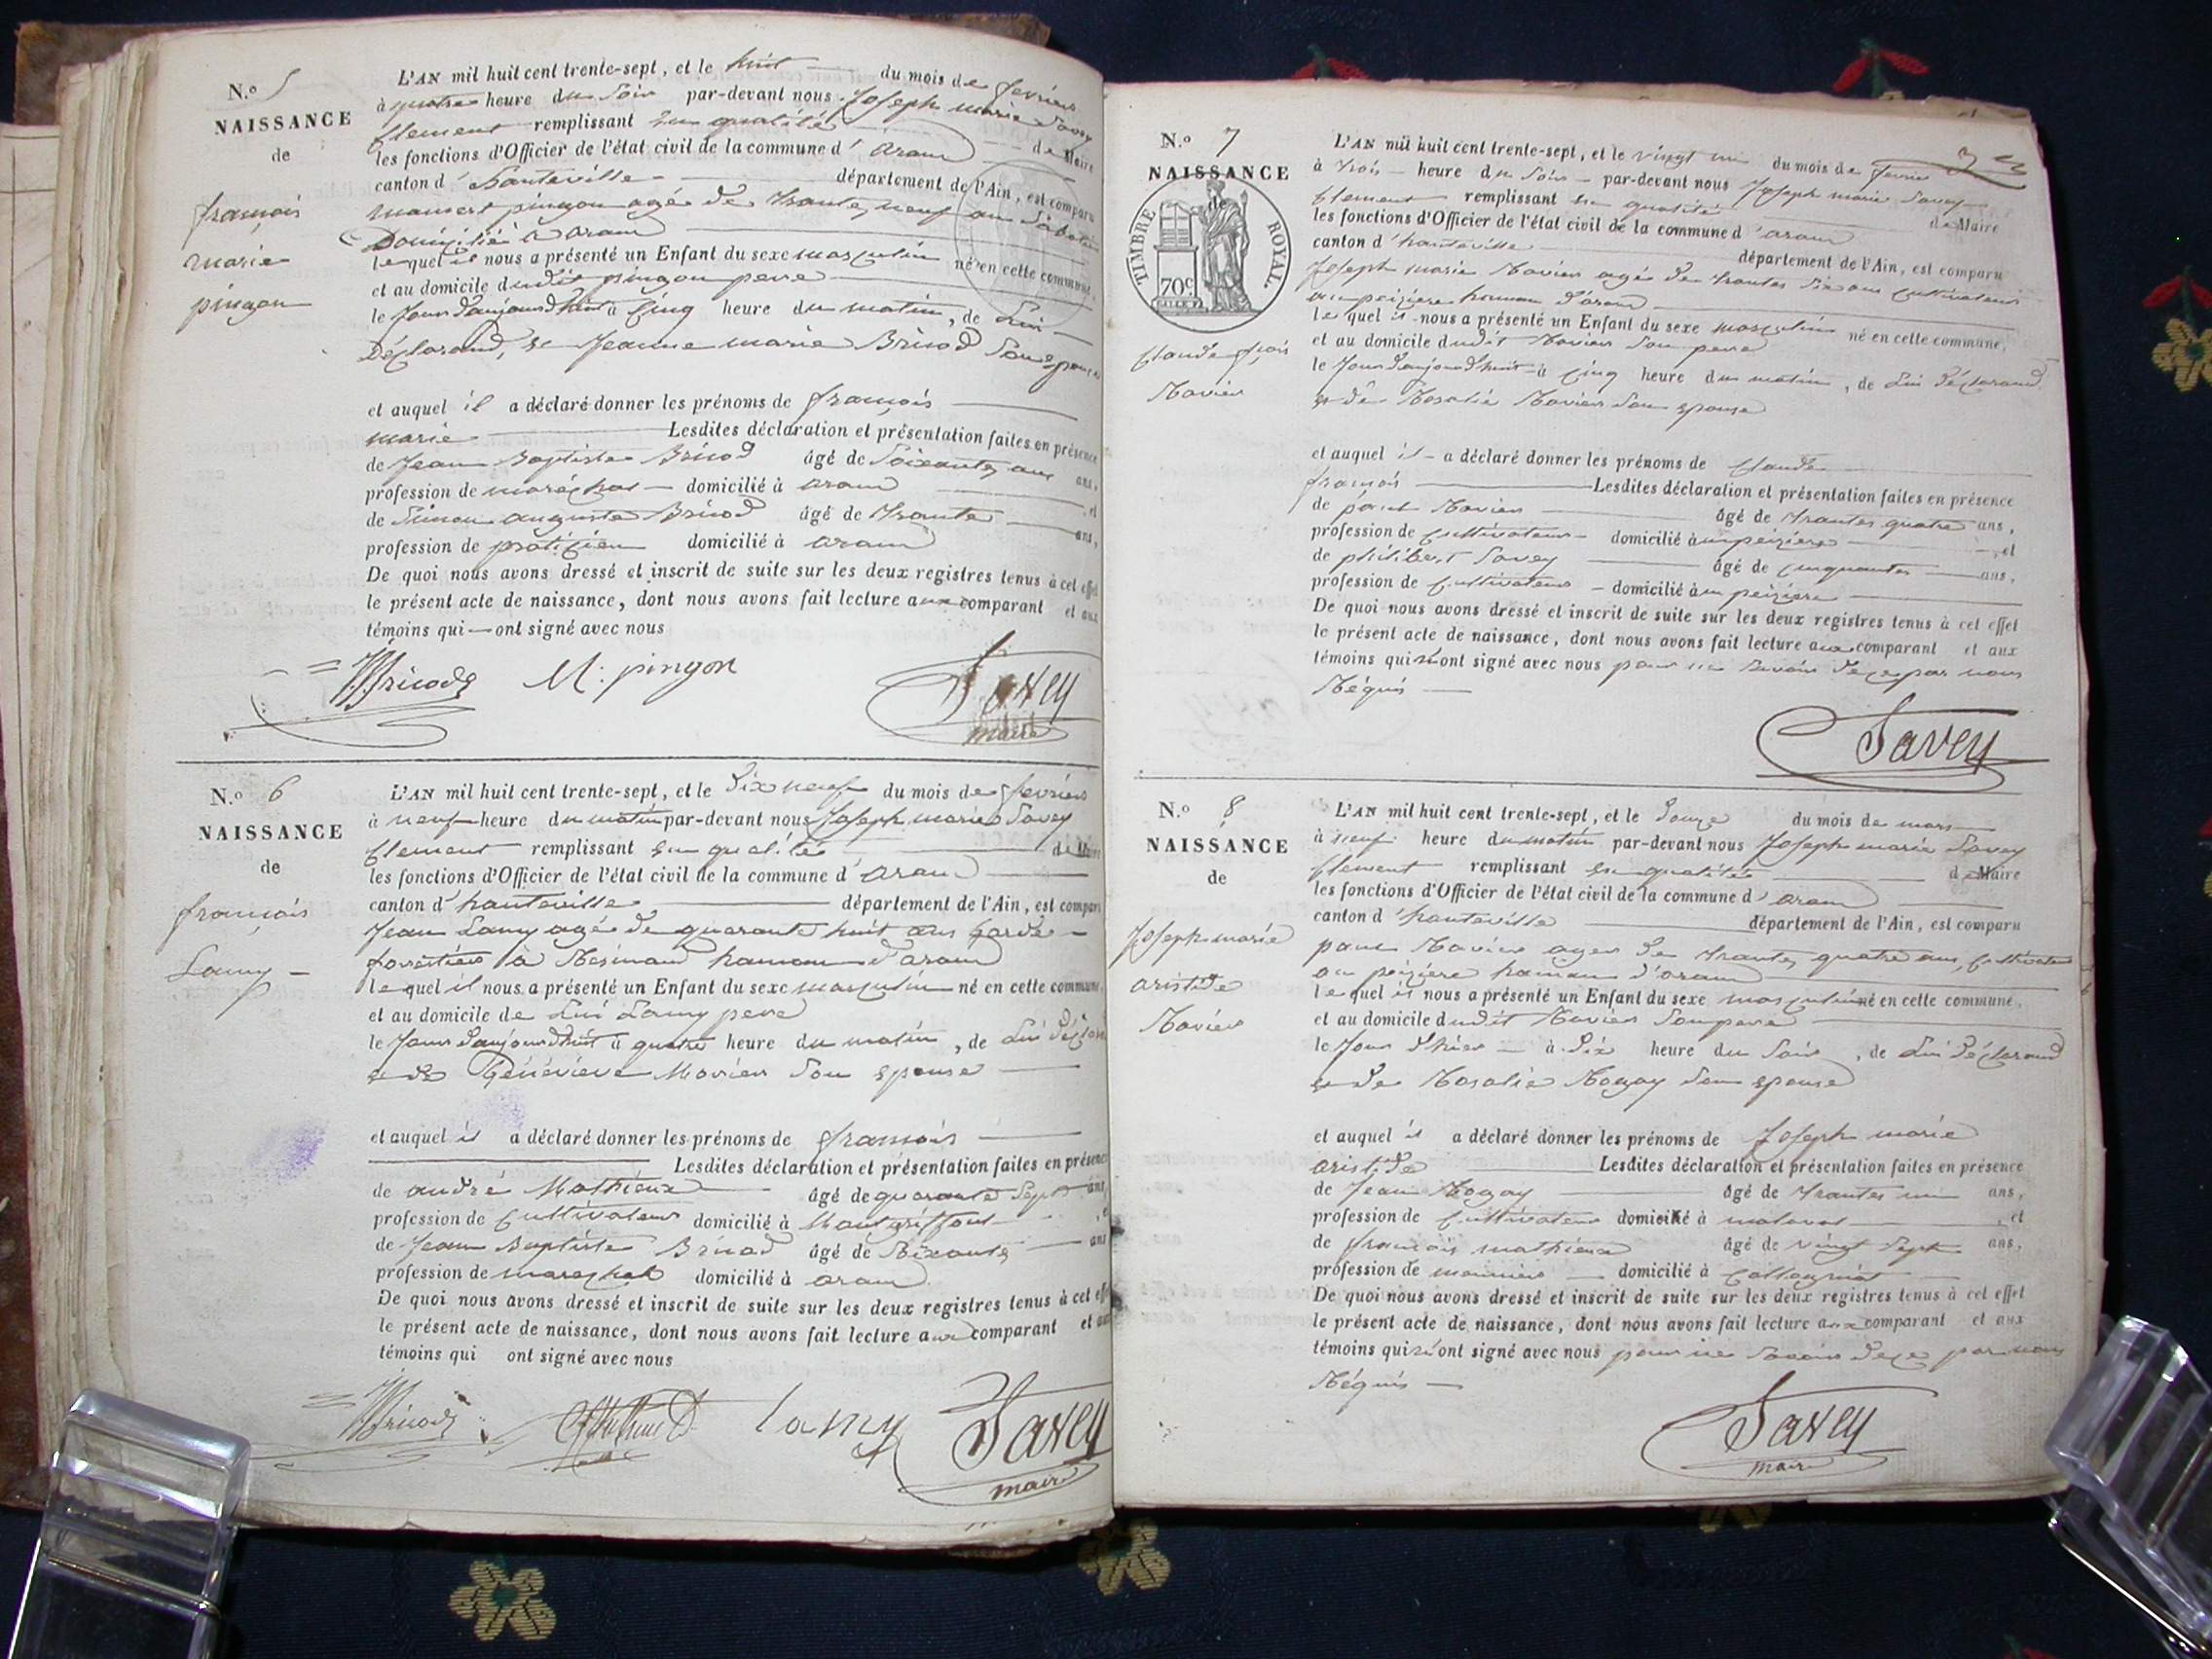 N.o 5
NAISSANCE
de
françois
marie
pingon
L'AN mil huit cent trente-sept, et le huit du mois de fevrier
à quatre heure du soir par-devant nous Joseph marie Savey
Clement remplissant en qualité de Maire
les fonctions d'Officier de l'état civil de la commune d' aranc
canton d' hauteville département de l'Ain, est comparu
mansert pingon agé de trante neuf ans Sabotier
Domicilié a aranc
lequel il nous a présenté un Enfant du sexe masculin né en cette commune,
et au domicile dudit pingon pere
le Jour daujourdhuit à cinq heure du matin, de Lui
Déclarand, et Jeanne marie Bricod Son epouse
et auquel il a déclaré donner les prénoms de françois
marie Lesdites déclaration et présentation faites en présence
de Jean Baptiste Bricod âgé de Soixante ans ans,
profession de maréchal domicilié à aranc et
de Simon auguste Bricod âgé de trante ans,
profession de praticien domicilié à aranc
De quoi nous avons dressé et inscrit de suite sur les deux registres tenus à cet effet
le présent acte de naissance, dont nous avons fait lecture aux comparant et aux
témoins qui ont signé avec nous
JBricod M. pingon Savey
maire
N.o 6
NAISSANCE
de
françois
Lamy
L'AN mil huit cent trente-sept, et le Dix neuf du mois de fevrier
à neuf heure du matin par-devant nous Joseph marie Savey
Clement remplissant en qualité de Maire
les fonctions d'Officier de l'état civil de la commune d' aranc
canton d' hauteville département de l'Ain, est comparu
Jean Lamy agé de quarante huit ans garde
forestier à Résinand hameau d'aranc
lequel il nous a présenté un Enfant du sexe masculin né en cette commune,
et au domicile de Lui Lamy pere
le Jour daujourdhuit à quatre heure du matin, de Lui déclarand
et de Généviéve Mavier Son epouse
et auquel il a déclaré donner les prénoms de françois
Lesdites déclaration et présentation faites en présence
de andré Mathieux âgé de quarante Sept ans
profession de Cultivateur domicilié à Montgriffont
de Jean Baptiste Bricod âgé de Soixante ans
profession de marechal domicilié à aranc
De quoi nous avons dressé et inscrit de suite sur les deux registres tenus à cet effet
le présent acte de naissance, dont nous avons fait lecture aux comparant et aux
témoins qui ont signé avec nous
JBricod Lamy Savey
maire
N.o 7
NAISSANCE
TIMBRE ROYAL.
70c
Claude fçois
Ravier
L'AN mil huit cent trente-sept, et le vingt un du mois de fevrier
à trois heure du Soir par-devant nous Joseph marie Savey
Clement remplissant en qualité de Maire
les fonctions d'Officier de l'état civil de la commune d' aranc
canton d' hauteville département de l'Ain, est comparu
Joseph marie Ravier agé de trantes Six ans cultivateur
au peiziere hameau d'aranc
lequel il nous a présenté un Enfant du sexe masculin né en cette commune,
et au domicile dudit Ravier Son pere
le Jour daujourdhuit à cinq heure du matin, de Lui déclarand
et de Rosalie Ravier Son epouse
et auquel il a déclaré donner les prénoms de Claude
françois Lesdites déclaration et présentation faites en présence
de paul Ravier âgé de trantes quatre ans,
profession de Cultivateur domicilié à au peiziere et
de philibert Savey âgé de cinquantes ans,
profession de Cultivateur domicilié à au peiziere
De quoi nous avons dressé et inscrit de suite sur les deux registres tenus à cet effet
le présent acte de naissance, dont nous avons fait lecture aux comparant et aux
témoins qui n'ont signé avec nous pour ne Savoir de ce par nous
Réquis
Savey
N.o 8
NAISSANCE
de
Joseph marie
aristide
Ravier
L'AN mil huit cent trente-sept, et le Douze du mois de mars
à neuf heure du matin par-devant nous Joseph marie Savey
Clement remplissant en qualité de Maire
les fonctions d'Officier de l'état civil de la commune d' aranc
canton d' hauteville département de l'Ain, est comparu
paul Ravier ager de trantes quatre ans, Cultivateur
au peiziere hameau d'aranc
lequel il nous a présenté un Enfant du sexe masculin né en cette commune,
et au domicile dudit Ravier Son pere
le Jour d'hier à Dix heure du Soir, de Lui déclarand
et de Rosalie Rogay Son epouse
et auquel il a déclaré donner les prénoms de Joseph marie
aristide Lesdites déclaration et présentation faites en présence
de Jean Rogay âgé de trantes un ans,
profession de Cultivateur domicilié à malaval et
de françois mathieux âgé de vingt Sept ans,
profession de meunier domicilié à
De quoi nous avons dressé et inscrit de suite sur les deux registres tenus à cet effet
le présent acte de naissance, dont nous avons fait lecture aux comparant et aux
témoins qui n'ont signé avec nous pour ne Savoir de ce par nous
Réquis
Savey
maire